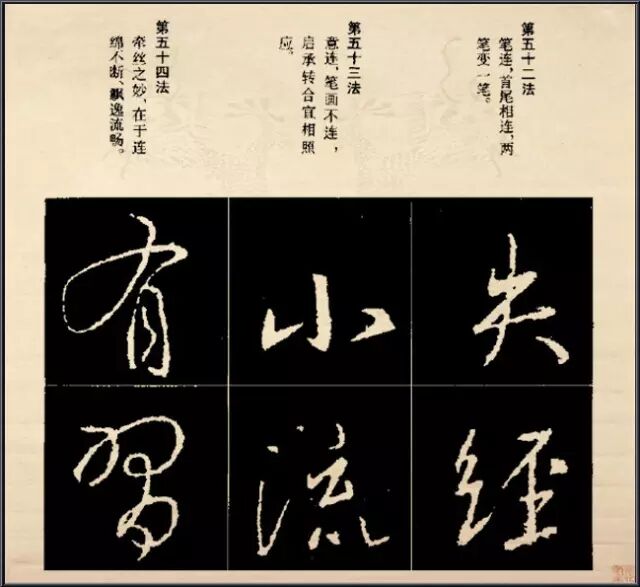 第五十二法
笔连，首尾相连，两
笔变一笔。
第五十三法
意连，笔画不连，
启承转合宜相照
应。
第五十四法
牵丝之妙、在于连
绵不断、飘逸流畅。
失
經
小
流
有
習